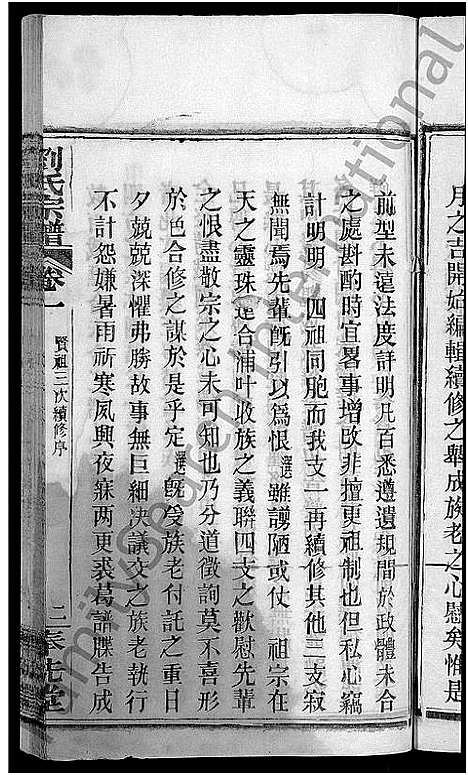 月之吉開始編輯續修之舉成族老之心慰矣惟是
前型未遠法度詳明凡百悉遵遺規間於政體未合
之處斟酌時宜畧事增改非擅更祖制也但私心竊
計明明 四祖同胞而我支一再續修其他三支寂
無聞焉先輩旣引以爲恨選雖謭陋或仗 祖宗在
天之靈珠還合浦叶收族之義聯四支之歡慰先輩
之恨盡敬宗之心未可知也乃分道徵詢莫不喜形
於色合修之謀於是乎定選旣受族老付託之重日
夕兢兢深懼弗勝故事無巨細决議交之族老執行
不計怨嫌暑雨祈寒夙興夜寐两更裘葛譜牒告成
劉氏宗譜 卷一 賢祖三次續修序 二 奉先堂
familysearch international